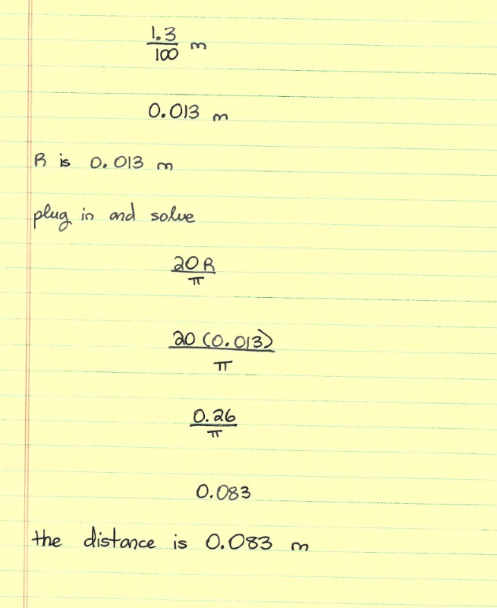 1.3/100 m
0.013 m
R is 0.013 m
plug in and solve
20R/π
20(0.013)/π
0.26/π
0.083
the distance is 0.083 m